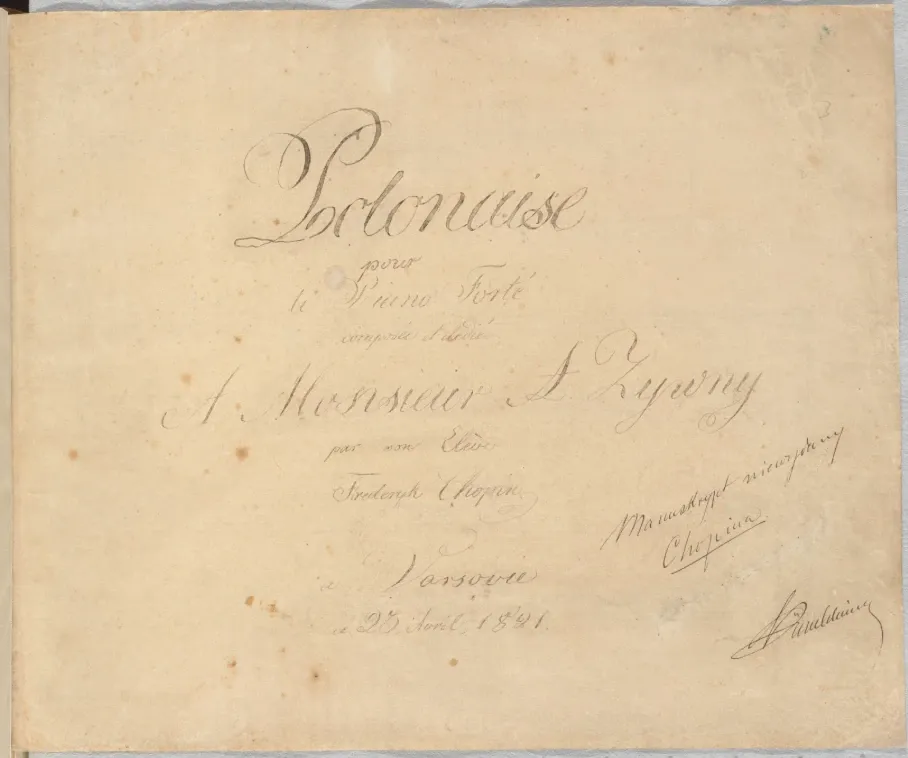 3
Polonaise
pour
le Piano Forté
composée et dedié
A Monsieur A. Zywny
par son Elève
Fryderyk Chopin
à Varsovie
ce 23 Avril 1821
Manuskrypt niewydany
Chopina